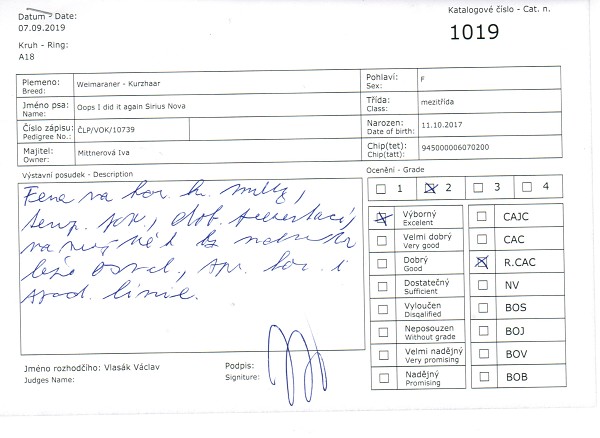 Datum - Date:
07.09.2019
Kruh - Ring:
A18
Katalogové číslo - Cat. n.
1019
Plemeno:
Breed:
Weimaraner - Kurzhaar
Pohlaví:
Sex:
F
Jméno psa:
Name:
Oops I did it again Sirius Nova
Třída:
Class:
mezitřída
Číslo zápisu:
Pedigree No.:
ČLP/VOK/10739
Narozen:
Date of birth:
11.10.2017
Majitel:
Owner:
Mittnerová Iva
Chip(tet):
Chip(tatt):
945000006070200
Výstavní posudek - Description
Fena na hor. h.
linie.
Jméno rozhodčího: Vlasák Václav
Judges Name:
Podpis:
Signiture:
Ocenění - Grade
1 2 3 4
Výborný
Excelent
CAJC
Velmi dobrý
Very good
CAC
Dobrý
Good
R.CAC
Dostatečný
Sufficient
NV
Vyloučen
Disqalified
BOS
Neposouzen
Without grade
BOJ
Velmi nadějný
Very promising
BOV
Nadějný
Promising
BOB